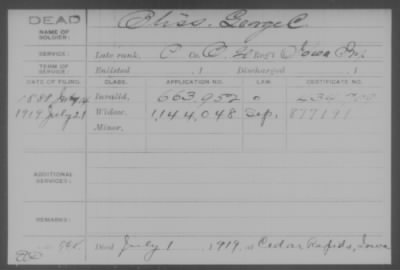 DEAD
NAME OF SOLDIER:
Bliss, George C
SERVICE:
Late rank, C Co. C, 2 Reg't Iowa Inf.
TERM OF SERVICE:
Enlisted , 1 Discharged , 1
DATE OF FILING. CLASS. APPLICATION NO. LAW. CERTIFICATE NO.
1888 July 14 Invalid, 663,952
1919 July 21 Widow, 1,144,048 877191
Minor,
ADDITIONAL SERVICES:
REMARKS:
Died July 1 1919, at Cedar Rapids, Iowa